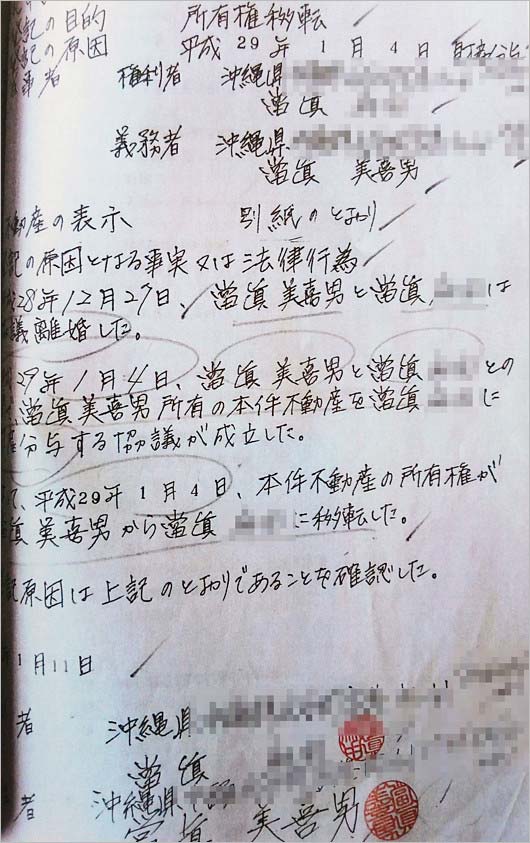 記の目的 所有権移転
記の原因 平成29年1月4日 財産分与
事者 権利者 沖縄県
當眞
義務者 沖縄県
當眞 美喜男
動産の表示 別紙のとおり
記の原因となる事実又は法律行為
成28年12月27日、當眞美喜男と當眞 は
議離婚した。
29年1月4日、當眞美喜男と當眞 との
、當眞美喜男所有の本件不動産を當眞 に
産分与する協議が成立した。
て、平成29年1月4日、本件不動産の所有権が
眞美喜男から當眞 に移転した。
記原因は上記のとおりであることを確認した。
年1月11日
者 沖縄県
當眞
者 沖縄県
當眞 美喜男